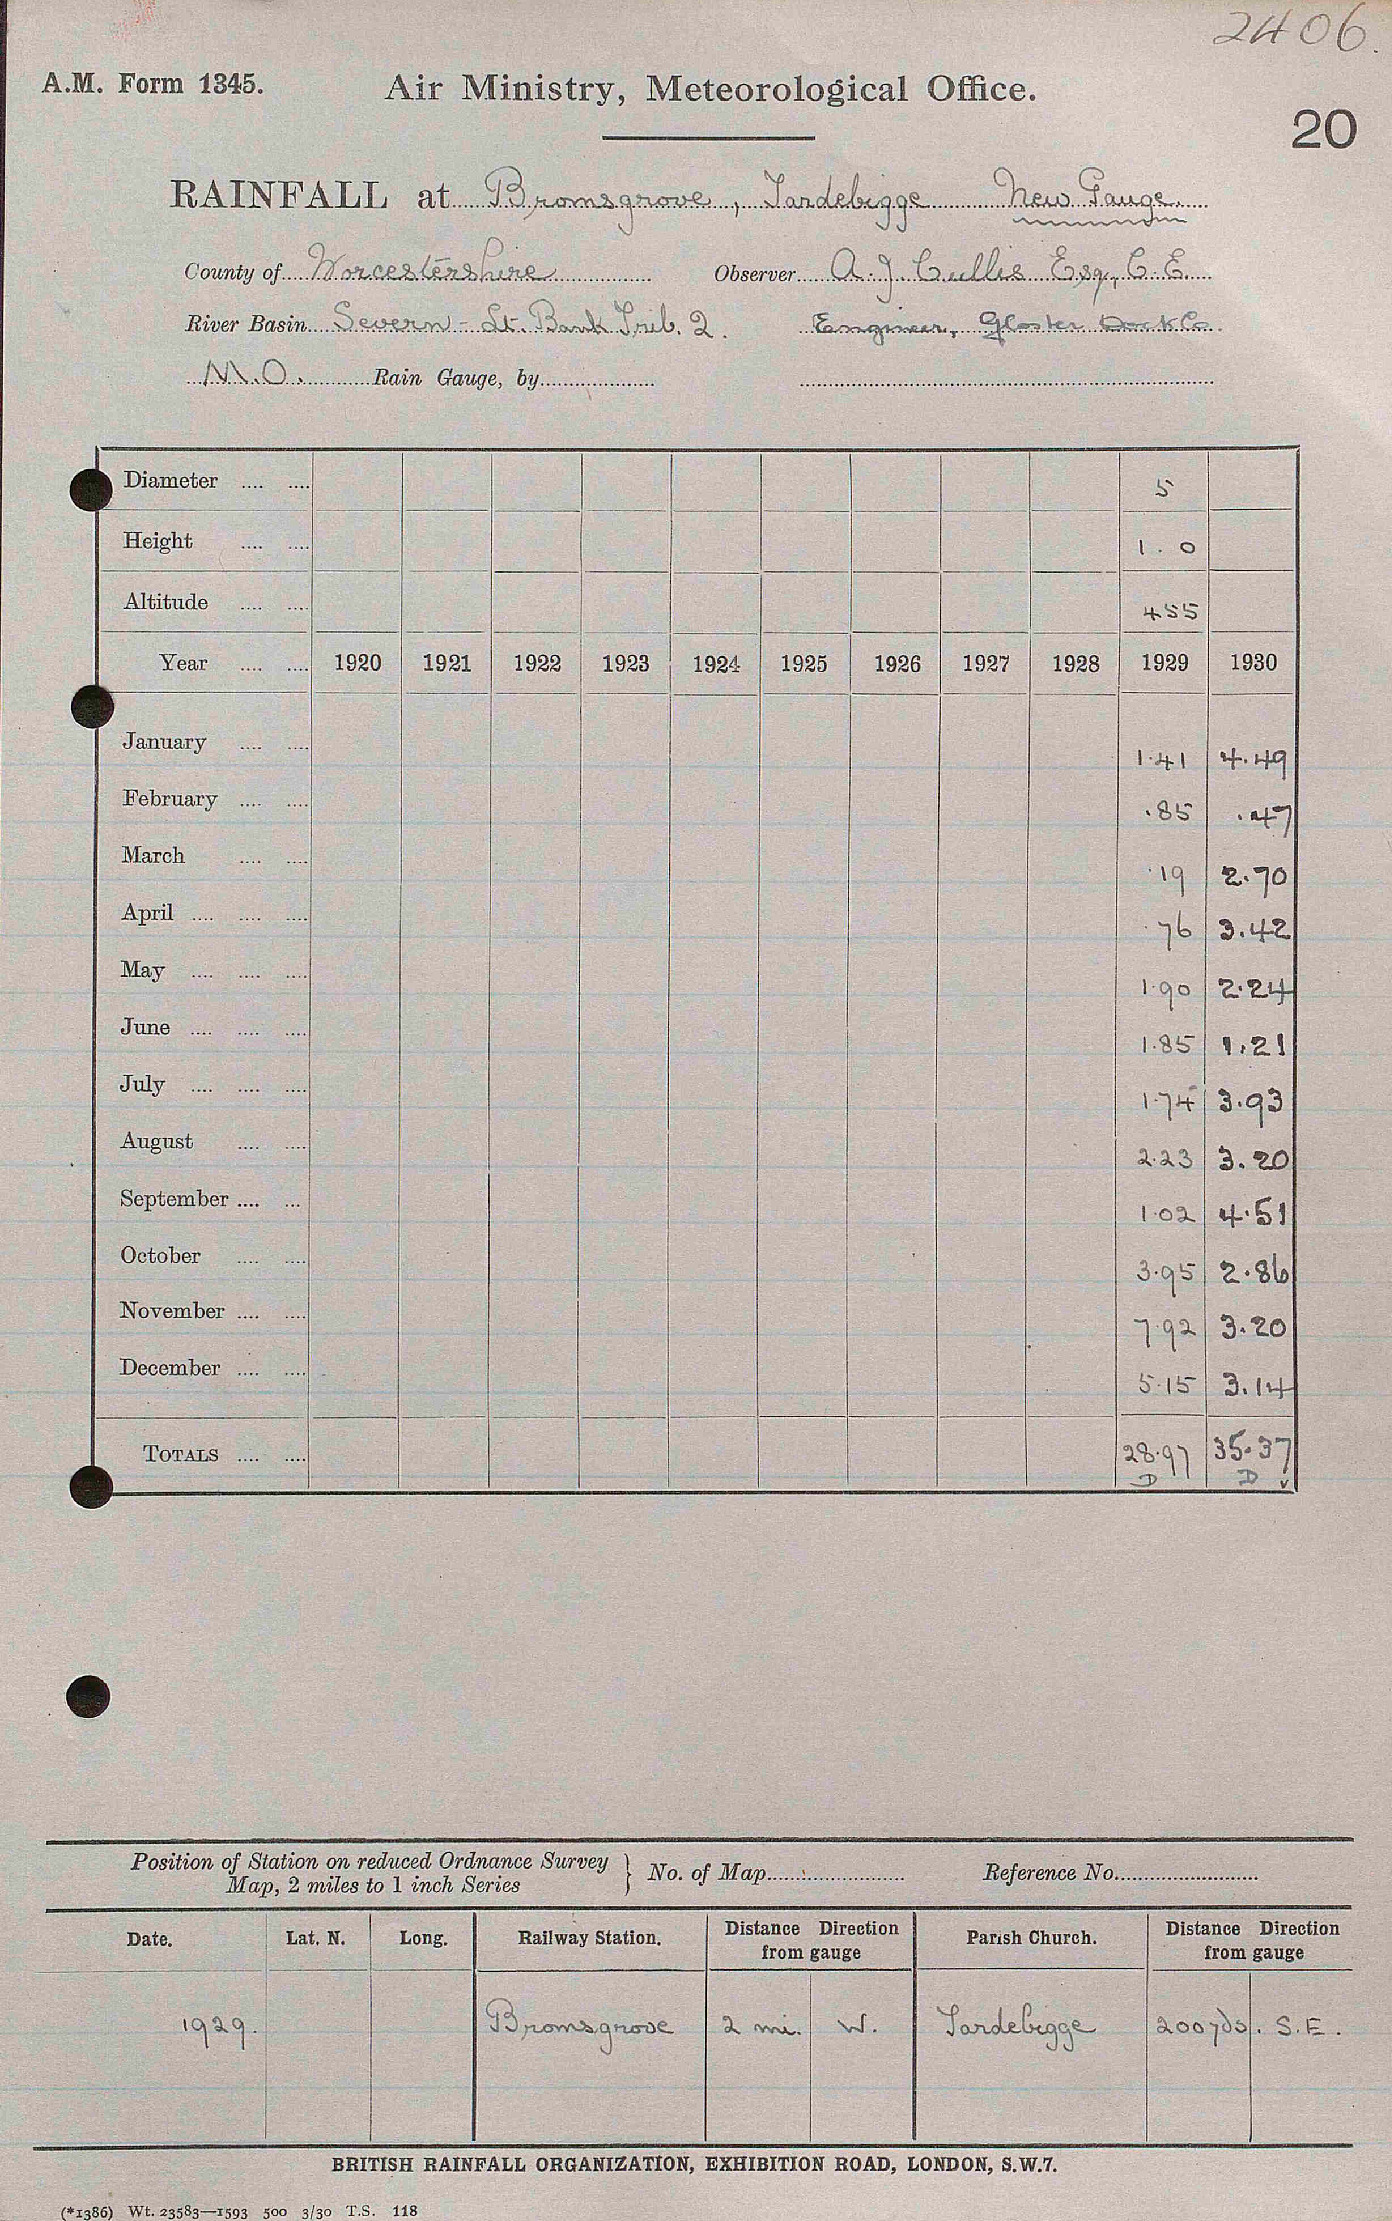 2406.
A.M. Form 1345. Air Ministry, Meteorological Office.
20
RAINFALL at Bromsgrove, Tardebigge New Gauge.
County of Worcestershire Observer A. J. Cullis Esq., C.E.
River Basin Severn - Lt. Bank Trib. 2. Engineer, Gloster Dock Co.
M.O. Rain Gauge, by
Diameter .... .... 5
Height .... .... 1.0
Altitude .... .... 455
Year .... .... 1920 1921 1922 1923 1924 1925 1926 1927 1928 1929 1930
January .... .... 1.41 4.49
February .... .... .85 .47
March .... .... .19 2.70
April .... .... .... .76 3.42
May .... .... .... 1.90 2.24
June .... .... .... 1.85 1.21
July .... .... .... 1.74 3.93
August .... .... 2.23 3.20
September .... ... 1.02 4.51
October .... .... 3.95 2.86
November .... .... 7.92 3.20
December .... .... 5.15 3.14
TOTALS .... .... 28.97 35.37
D D v
Position of Station on reduced Ordnance Survey } No. of Map Reference No.
Map, 2 miles to 1 inch Series
Date. Lat. N. Long. Railway Station. Distance Direction Parish Church. Distance Direction
from gauge from gauge
1929. Bromsgrove 2 mi. W. Tardebigge 200 yds. S.E.
BRITISH RAINFALL ORGANIZATION, EXHIBITION ROAD, LONDON, S.W.7.
(*1386) Wt. 23583—1593 500 3/30 T.S. 118